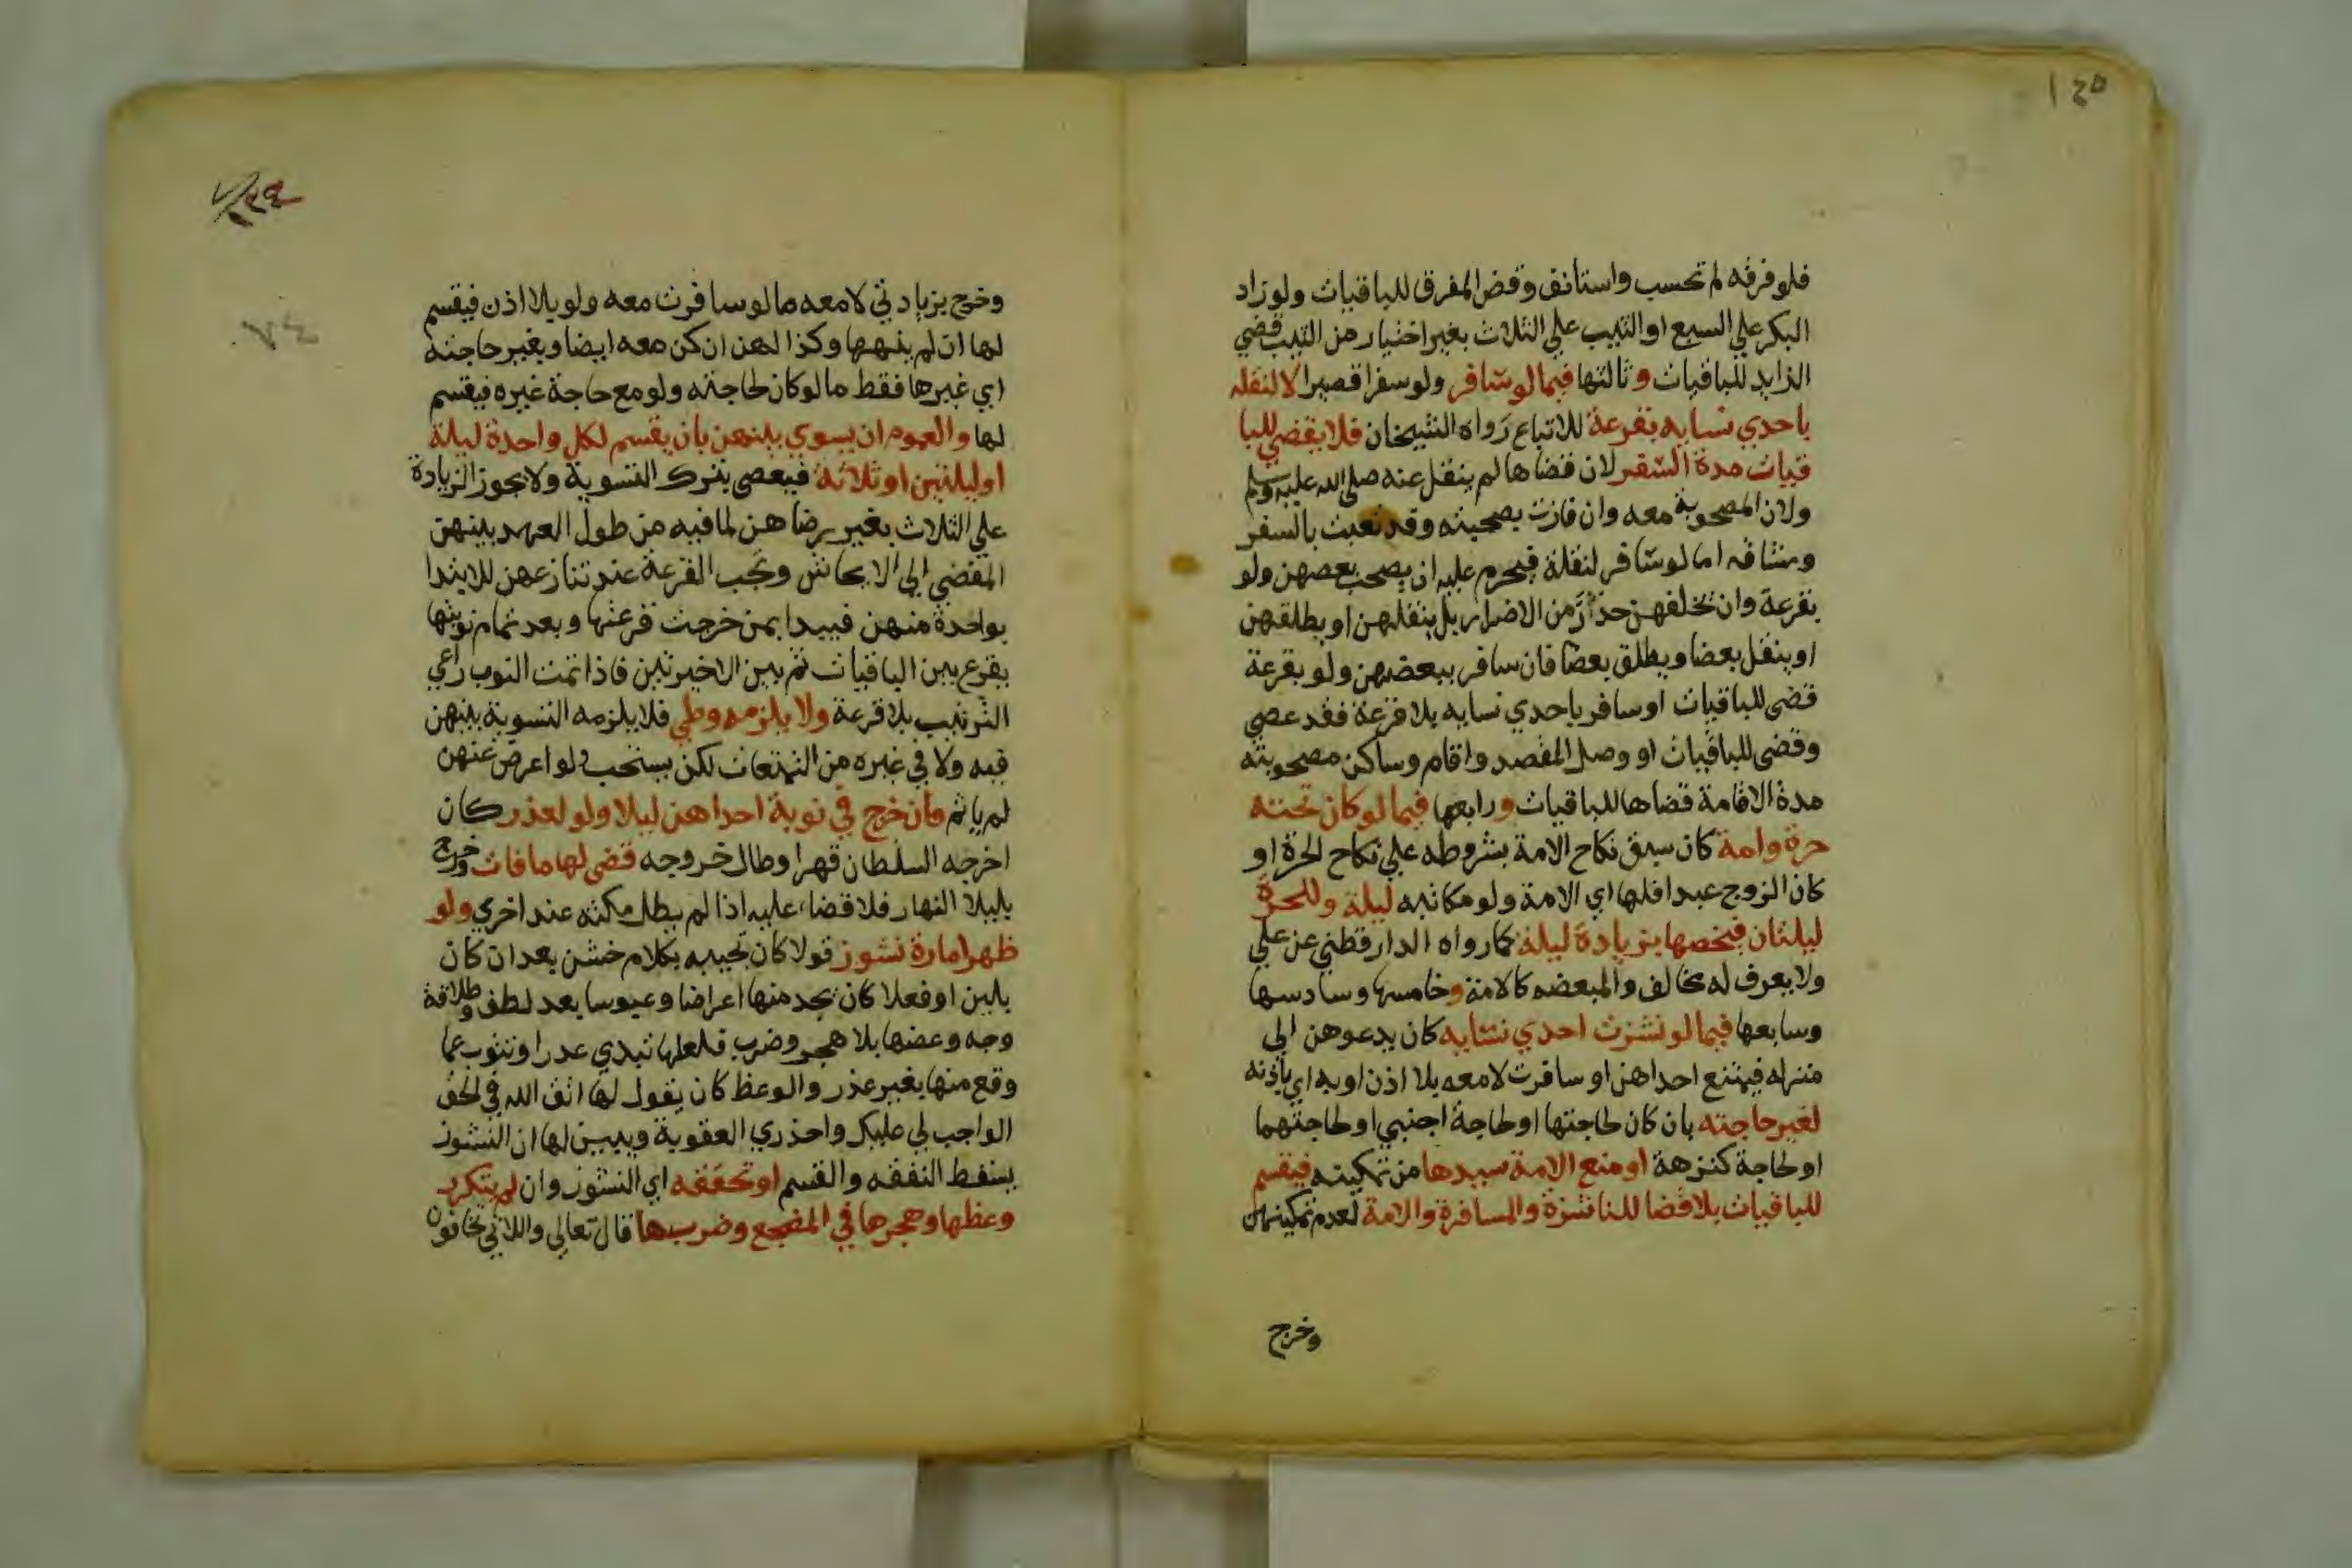 ١٤٥
فلو فرقه لم تحسب واستانف وقض المفرق للباقيات ولو زاد
البكر علي السبع او الثيب علي الثلاث بغير اختيار من الثيب قضي
الزايد للباقيات وثالثها فيما لو سافر ولو سفرا قصيرا لا لنقله
باحدي نسايه بقرعة للاتباع رواه الشيخان فلا يقضي للبا
قيات مدة السفر لان قضاها لم ينقل عنه صلى الله عليه وسلم
ولان المصحوبة معه وان فازت بصحبته وقد تعبت بالسفر
ومشاقه اما لو سافر لنقلة فيحرم عليه ان يصحب بعضهن ولو
بقرعة وان تخلفهن حذرا من الاضرار بل ينقلهن او يطلقهن
او ينقل بعضا ويطلق بعضا فان سافر ببعضهن ولو بقرعة
قضى للباقيات او سافر باحدي نسايه بلا قرعة فقد عصي
وقضى للباقيات او وصل المقصد واقام وساكن مصحوبته
مدة الاقامة قضاها للباقيات ورابعها فيما لو كان تحته
حرة وامة كان سبق نكاح الامة بشروطه علي نكاح الحرة او
كان الزوج عبدا فلها اي الامة ولو مكاتبه ليلة وللحرة
ليلتان فيخصها بزيادة ليلة كما رواه الدارقطني عن علي
ولا يعرف له مخالف والمبعضه كالامة وخامسها وسادسها
وسابعها فيما لو نشزت احدي نسايه كان يدعوهن الى
منزله فيمتنع احداهن او سافرت لا معه بلا اذن او به اي باذنه
لغير حاجته بان كان لحاجتها او لحاجة اجنبي او لحاجتهما
او لحاجة كنزهة او منع الامة سيدها من تمكينه فيقسم
للباقيات بلا قضا للناشزة والمسافرة والامة لعدم تمكينهن
وخرج
١٣٤
٧٤
وخرج بزيادتي لا معه ما لو سافرت معه ولو بلا اذن فيقسم
لها ان لم ينهها وكذا لهن ان كن معه ايضا وبغير حاجته
اي غيرها فقط ما لو كان لحاجته ولو مع حاجة غيره فيقسم
لها والعموم ان يسوي بينهن بان يقسم لكل واحدة ليلة
او ليلتين او ثلاثة فيعصي بترك التسوية ولا يجوز الزيادة
علي الثلاث بغير رضاهن لما فيه من طول العهد بينهن
المفضي الى الايحاش وتجب القرعة عند تنازعهن للابتدا
بواحدة منهن فيبدا بمن خرجت قرعتها وبعد تمام نوبتها
يقرع بين الباقيات ثم بين الاخيرتين فاذا تمت النوب راعي
الترتيب بلا قرعة ولا يلزمه وطي فلا يلزمه التسوية بينهن
فيه ولا في غيره من التمتعات لكن يستحب ولو اعرض عنهن
لم ياثم فان خرج في نوبة احداهن ليلا ولو لعذر كان
اخرجه السلطان قهرا وطال خروجه قضى لها ما فات وخرج
بليلا النهار فلا قضاء عليه اذا لم يطل مكثه عند اخري ولو
ظهر امارة نشوز قولا كان تجيبه بكلام خشن بعد ان كان
بلين او فعلا كان يجد منها اعراضا وعبوسا بعد لطف وطلاقة
وجه وعضها بلا هجر وضرب فلعلها تبدي عدرا وتتوب عما
وقع منها بغير عذر والوعظ كان يقول لها اتق الله في الحق
الواجب لي عليك واحذري العقوبة ويبين لها ان النشوز
يسقط النفقه والقسم او تحققه اي النشوز وان لم يتكرر
وعظها وهجرها في المضجع وضربها قال تعالى واللاتي تخافون